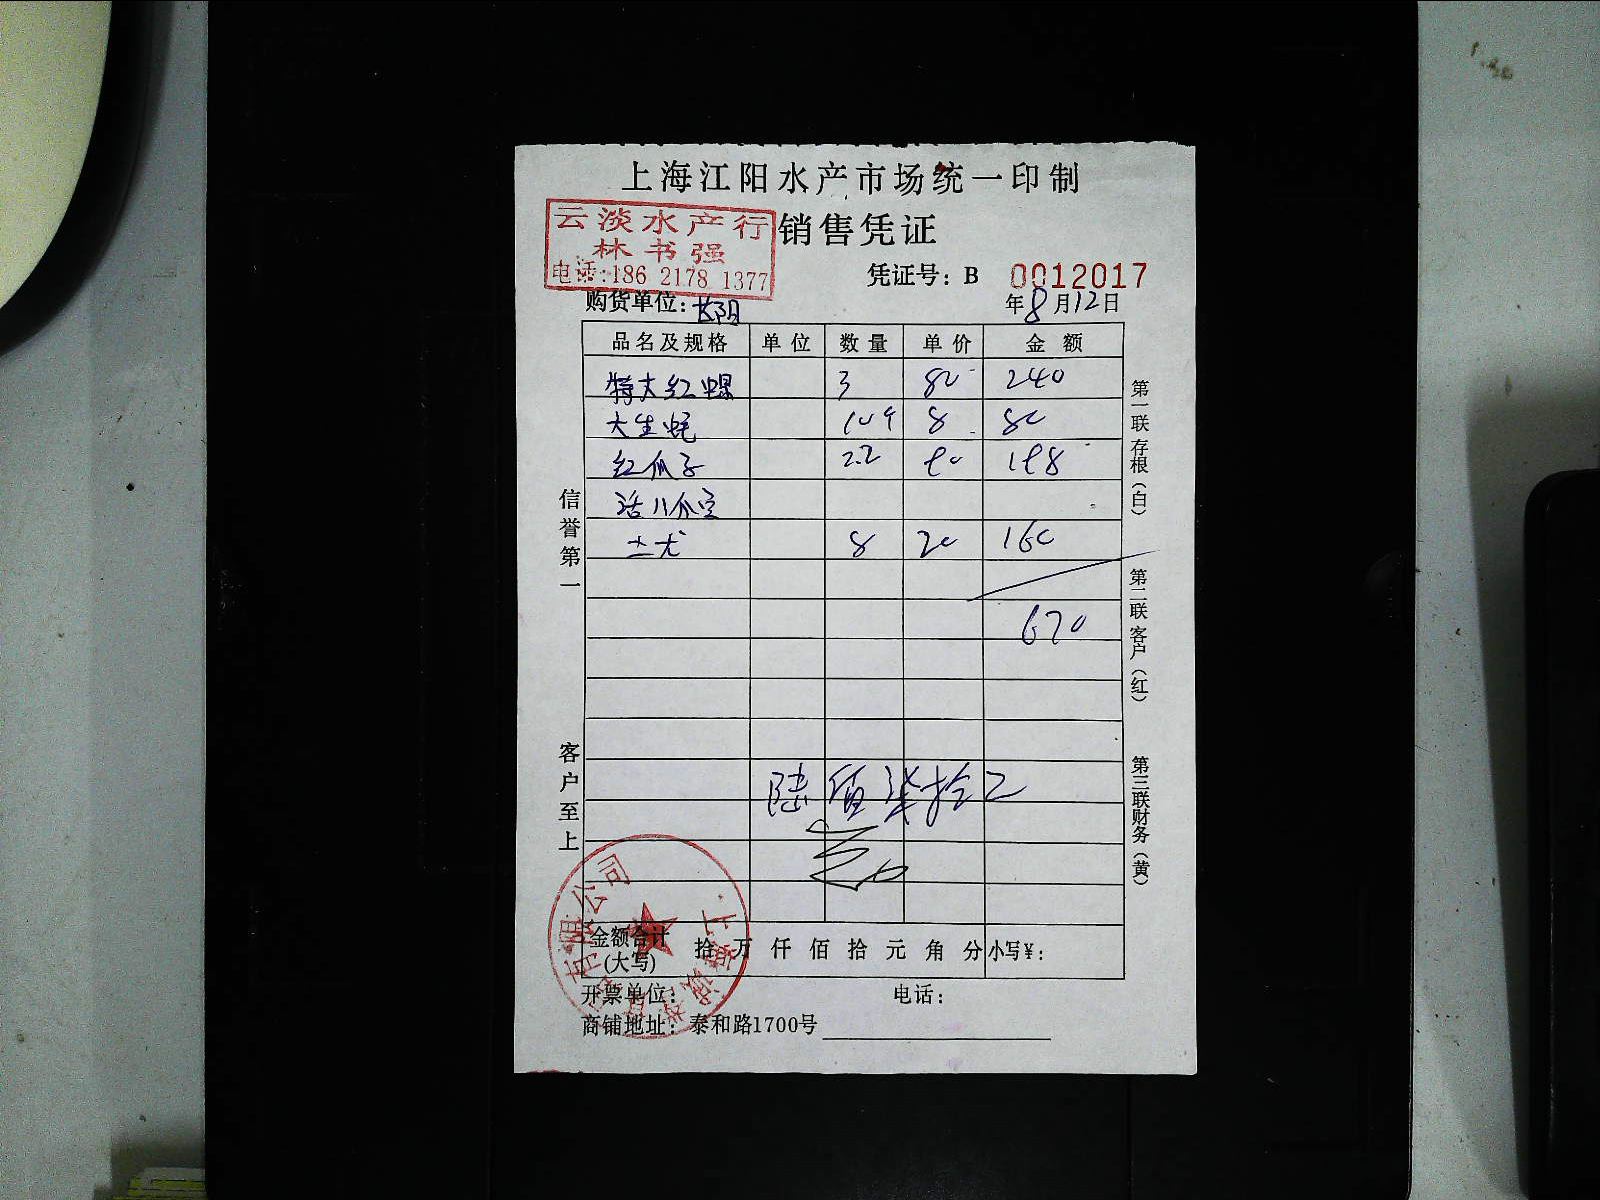 上海江阳水产市场统一印制
云淡水产行
林书强
电话:186 2178 1377
销售凭证
凭证号: B 0012017
购货单位:
年8月12日
品名及规格 单位 数量 单价 金额
特大红螺 3 80 240
大生蚝 10个 8 80
红瓜子 2.2 90 198
8 20 160
670
陆佰柒拾
金额合计(大写) 拾 万 仟 佰 拾 元 角 分 小写¥:
开票单位: 电话:
商铺地址: 泰和路1700号
信誉第一
客户至上
第一联 存根(白)
第二联 客户(红)
第三联 财务(黄)